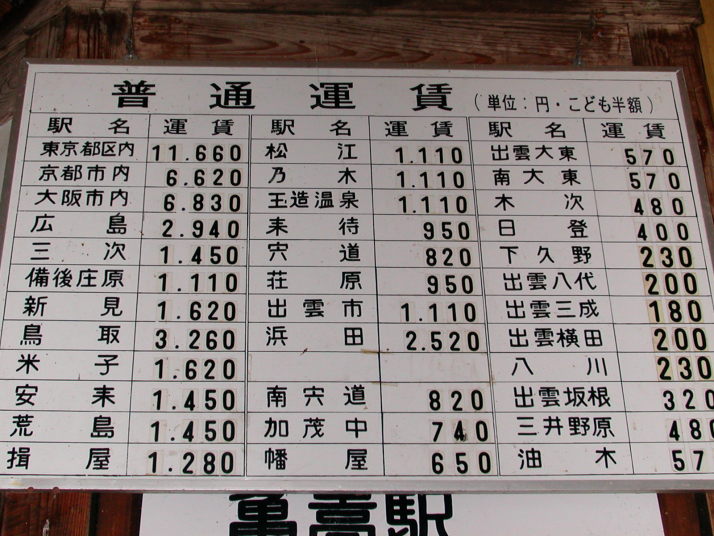 普通運賃（単位：円・こども半額）
駅名 運賃 駅名 運賃 駅名 運賃
東京都区内 11.660 松江 1.110 出雲大東 570
京都市内 6.620 乃木 1.110 南大東 570
大阪市内 6.830 玉造温泉 1.110 木次 480
広島 2.940 来待 950 日登 400
三次 1.450 宍道 820 下久野 230
備後庄原 1.110 荘原 950 出雲八代 200
新見 1.620 出雲市 1.110 出雲三成 180
鳥取 3.260 浜田 2.520 出雲横田 200
米子 1.620 八川 230
安来 1.450 南宍道 820 出雲坂根 320
荒島 1.450 加茂中 740 三井野原 480
揖屋 1.280 幡屋 650 油木 57
亀嵩駅